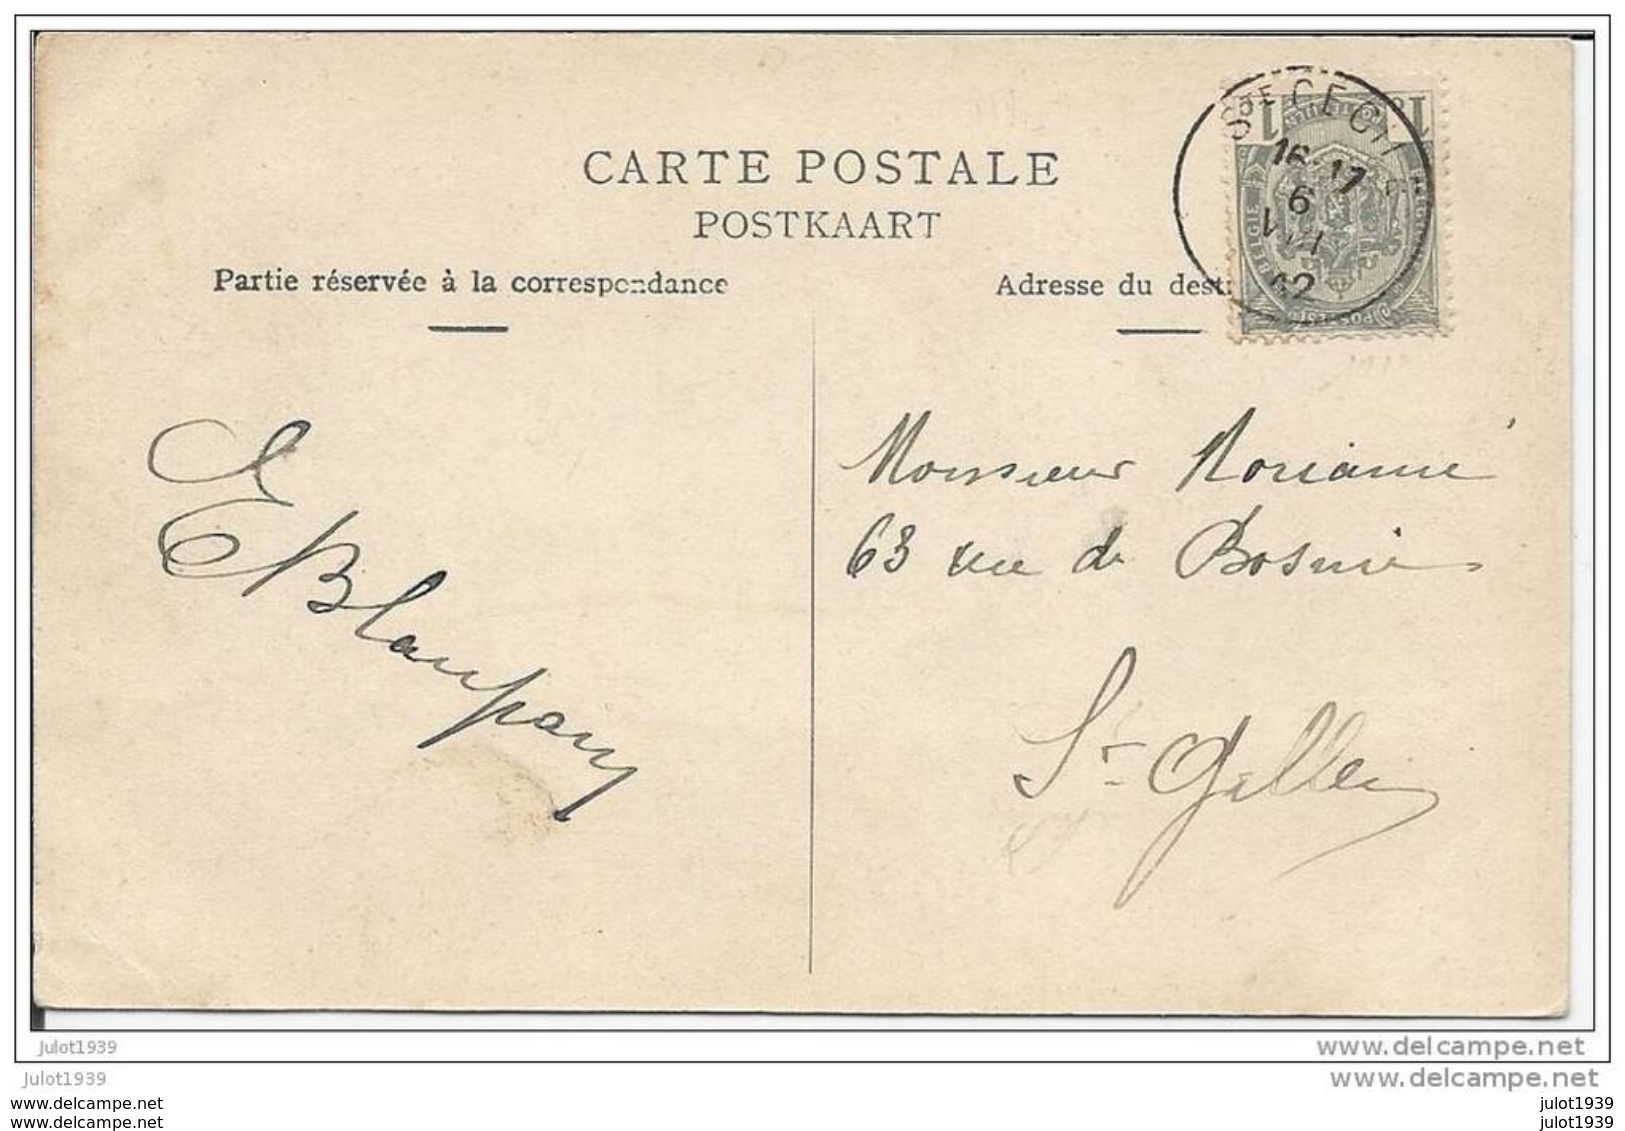 CARTE POSTALE
POSTKAART
Partie réservée à la correspondance
Adresse du dest
STE CECILE
16-17
6
VIII
12
1 1
BELGIE
E Blampain
Monsieur Moriamé
63 rue de Bosnie
St-Gilles
julot1939
www.delcampe.net
julot1939
www.delcampe.net
www.delcampe.net
julot1939
www.delcampe.net
julot1939